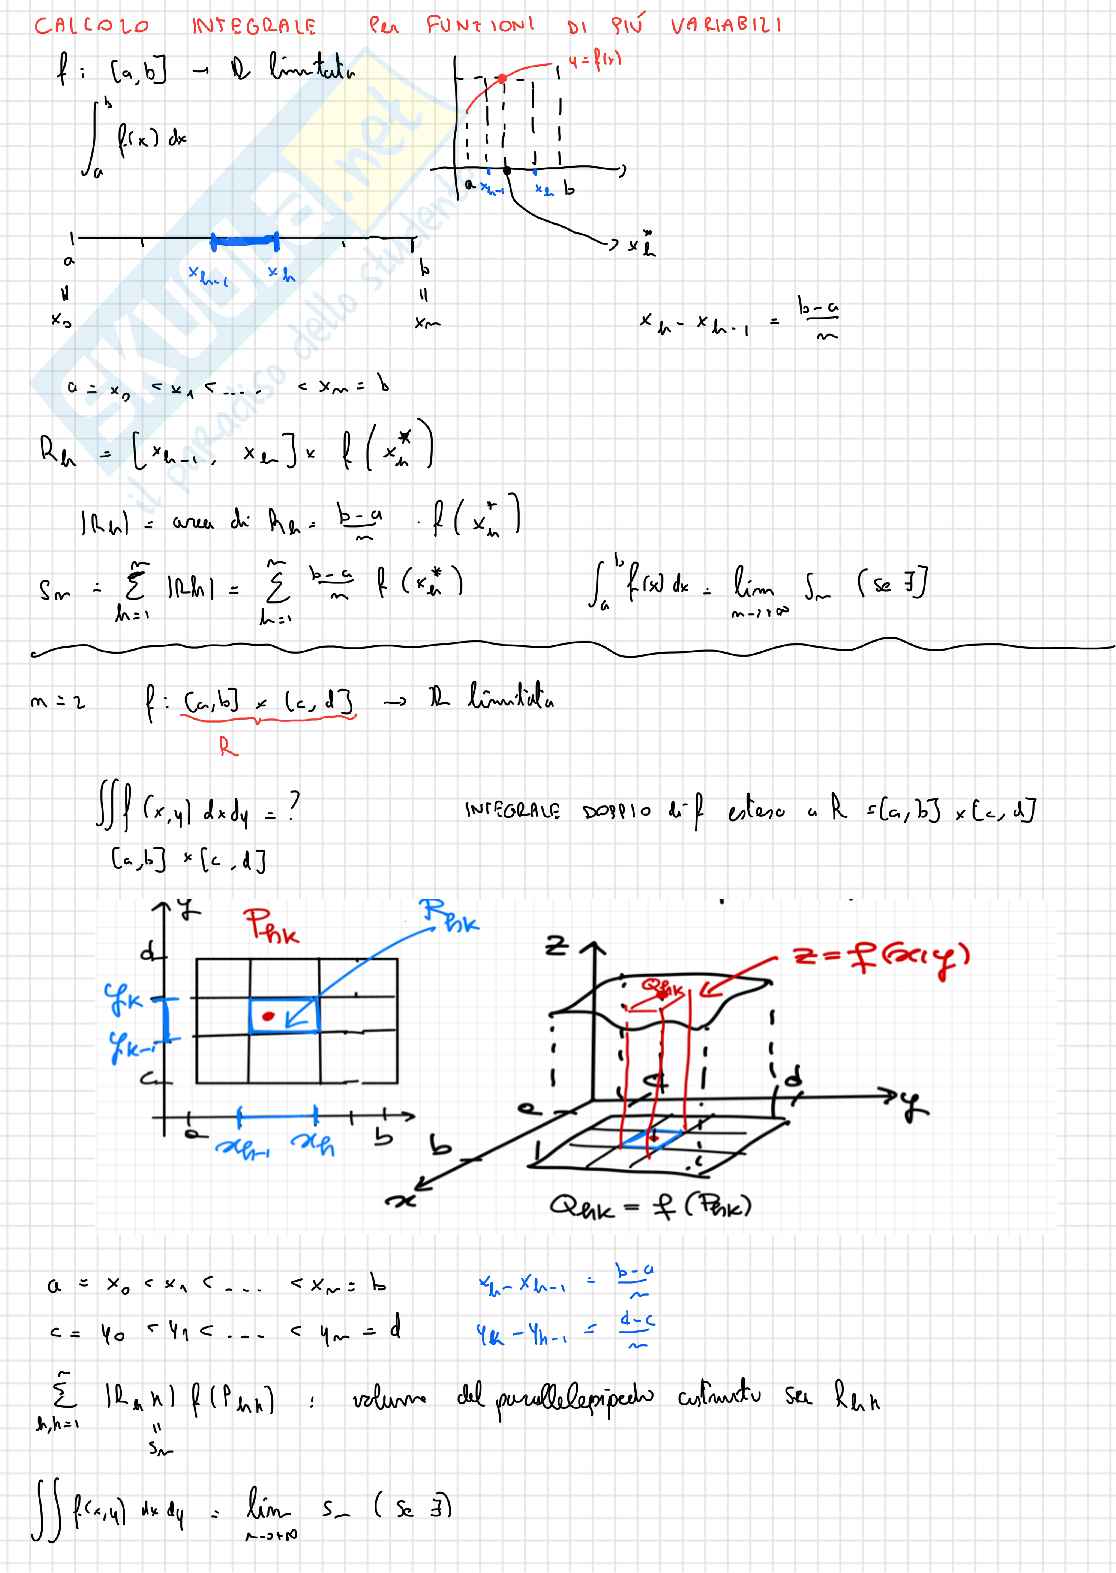 CALCOLO INTEGRALE PER FUNZIONI DI PIÚ VARIABILI
f : [a,b] → ℝ limitata
∫_a^b f(x) dx
y = f(x)
a x_{h-1} x_h b
x_h^*
x_{h-1} x_h
a b
॥ ॥
x_0 x_n
x_h - x_{h-1} = \frac{b-a}{n}
a = x_0 < x_1 < .... < x_n = b
R_h = [x_{h-1}, x_h] × f(x_h^*)
|R_h| = area di R_h = \frac{b-a}{n} · f(x_h^*)
S_n = \sum_{h=1}^{n} |R_h| = \sum_{h=1}^{n} \frac{b-a}{n} f(x_h^*) ∫_a^b f(x) dx = lim_{n→+∞} S_n (se ∃)
n = 2 f : [a,b] × [c,d] → ℝ limitata
R
∬ f(x,y) dxdy = ? INTEGRALE DOPPIO di f esteso a R = [a,b] × [c,d]
[a,b] × [c,d]
y P_{hk} R_{hk}
d
y_k
y_{k-1}
c
a x_{h-1} x_h b
z z = f(x,y)
Q_{hk}
a c d y
b
x
Q_{hk} = f(P_{hk})
a = x_0 < x_1 < .... < x_n = b x_h - x_{h-1} = \frac{b-a}{n}
c = y_0 < y_1 < .... < y_n = d y_k - y_{k-1} = \frac{d-c}{n}
\sum_{h,k=1}^{n} |R_{hk}| f(P_{hk}) : volume del parallelepipedo costruito su R_{hk}
॥
S_n
∬ f(x,y) dx dy = lim_{n→+∞} S_n (se ∃)
SKUOLA.net
il paradiso dello studente